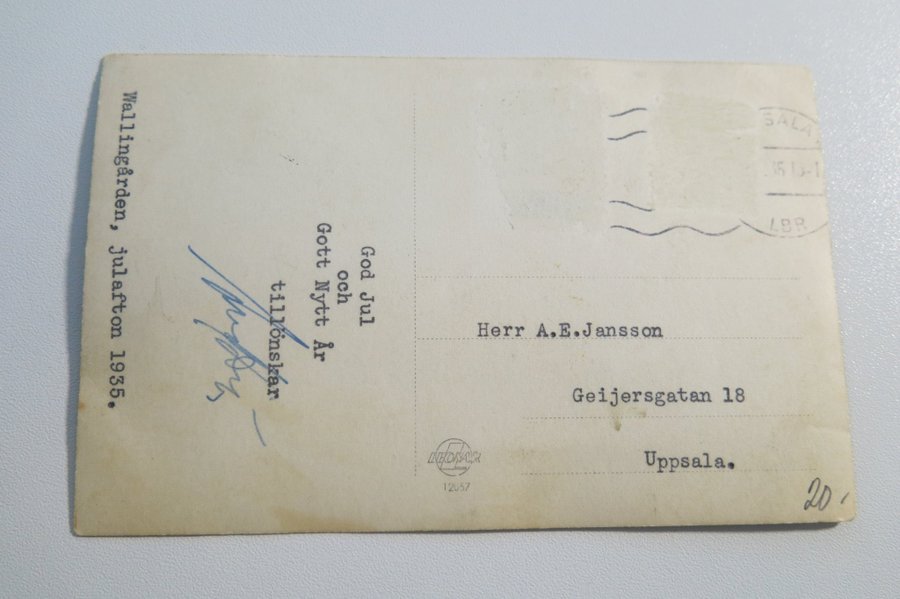 Wallingården, julafton 1935.
God Jul
och
Gott Nytt År
tillönskar
SALA
LBR
Herr A.E.Jansson
Geijersgatan 18
Uppsala.
12057
20